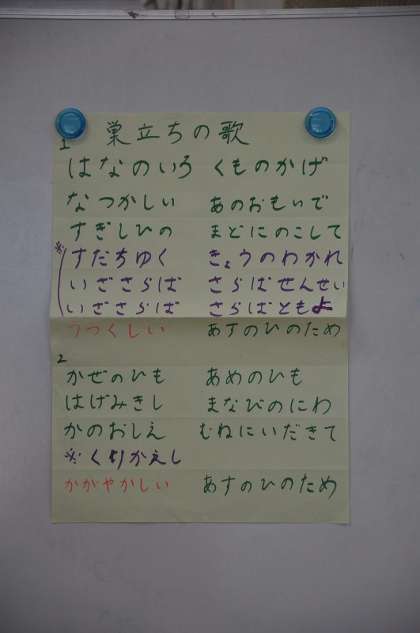 巣立ちの歌
1
はなのいろ くものかげ
なつかしい あのおもいで
すぎしひの まどにのこして
※ すだちゆく きょうのわかれ
いざさらば さらばせんせい
いざさらば さらばともよ
うつくしい あすのひのため
2
かぜのひも あめのひも
はげみきし まなびのにわ
かのおしえ むねにいだきて
※くりかえし
かがやかしい あすのひのため